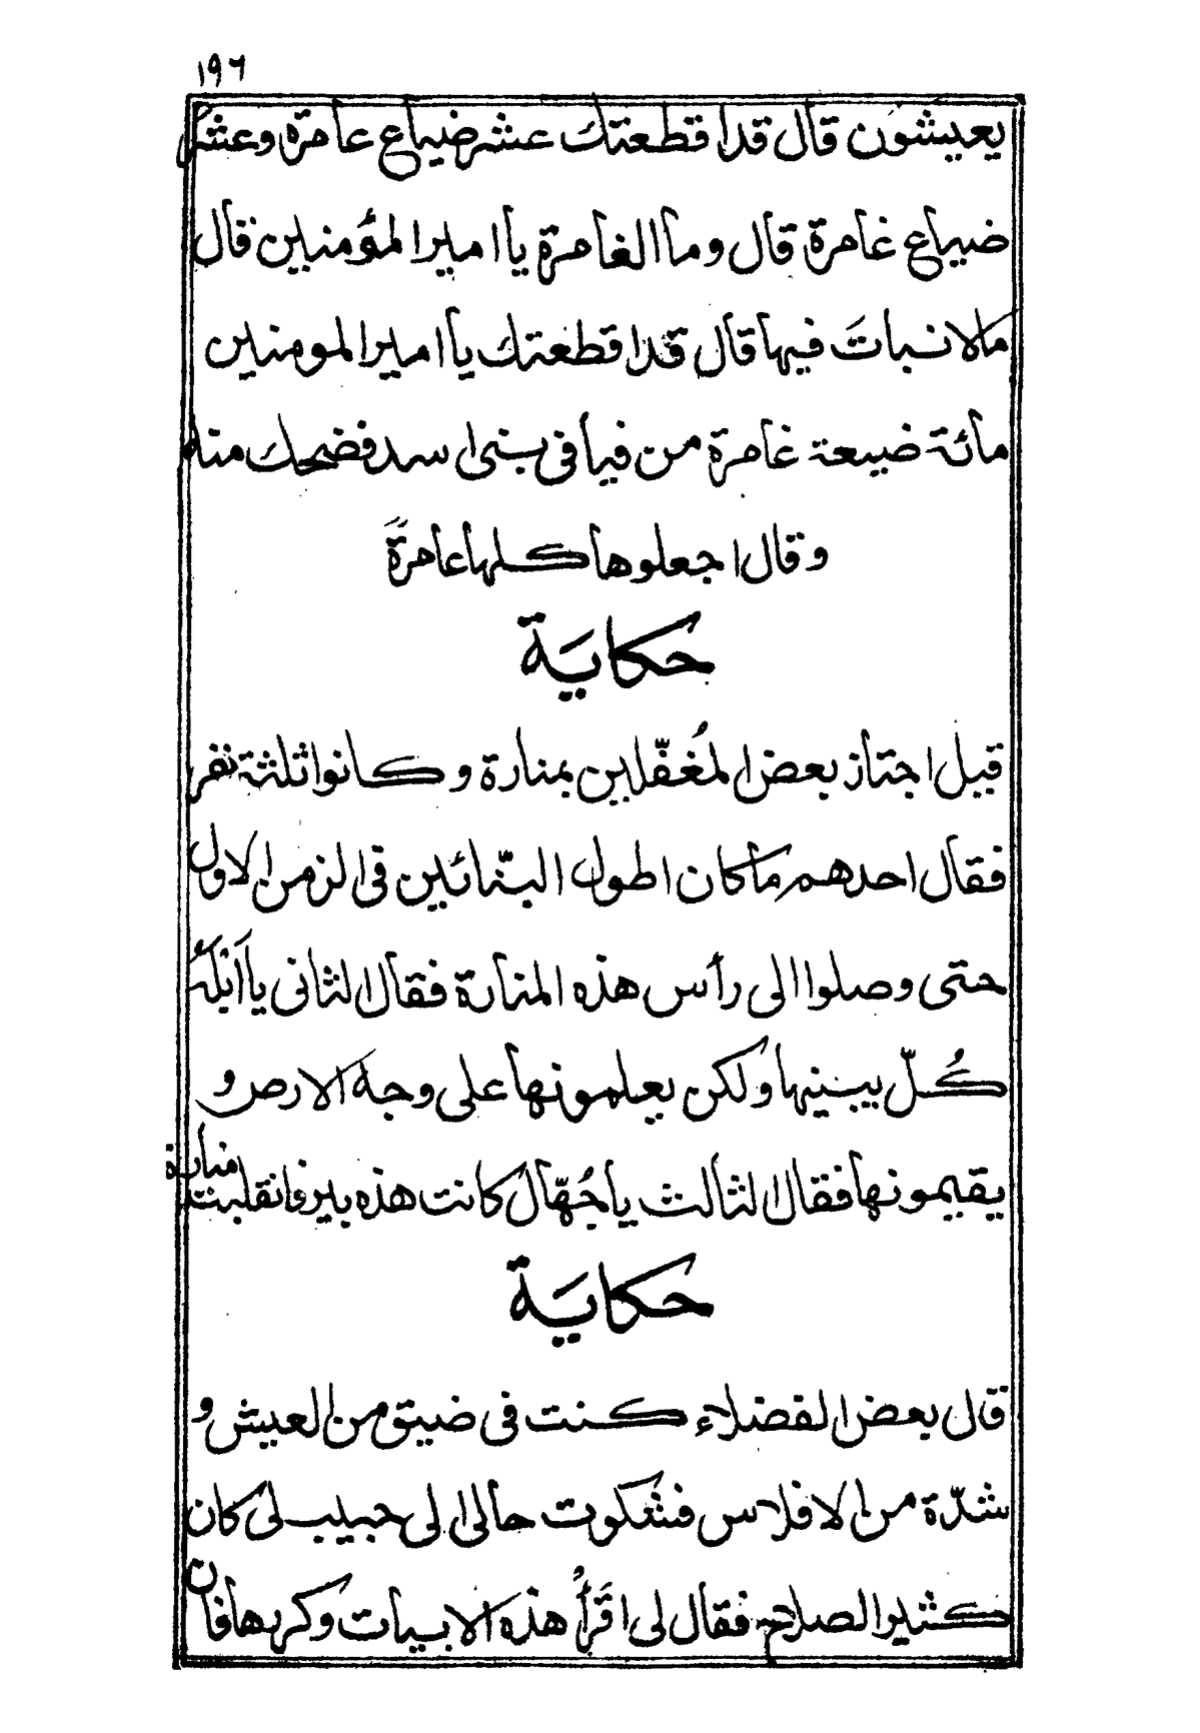 ١٩٦
يعيشون قال قد اقطعتك عشر ضياع عامرة وعشر
ضياع غامرة قال وما الغامرة يا امير المؤمنين قال
مالا نباتَ فيها قال قد اقطعتك يا امير المومنين
مائة ضيعة غامرة من فيافى بنى اسد فضحك منه
وقال اجعلوها كلها عامرةً
حكايَة
قيل اجتاز بعض المُغفّلين بمنارة وكانوا ثلثة نفر
فقال احدهم ما كان اطول البنّائين فى الزمن الاول
حتى وصلوا الى رأس هذه المنارة فقال الثانى يا اَبْلَهُ
كُلّ يبنيها ولكن يعلمونها على وجه الارض و
يقيمونها فقال الثالث يا جُهّال كانت هذه بير فانقلبت منارة
حكايَة
قال بعض الفضلاء كنت فى ضيق من العيش و
شدّة من الافلاس فشكوت حالى الى حبيب لى كان
كثير الصلاح فقال لى اقرَأْ هذه الابيات وكررها فان